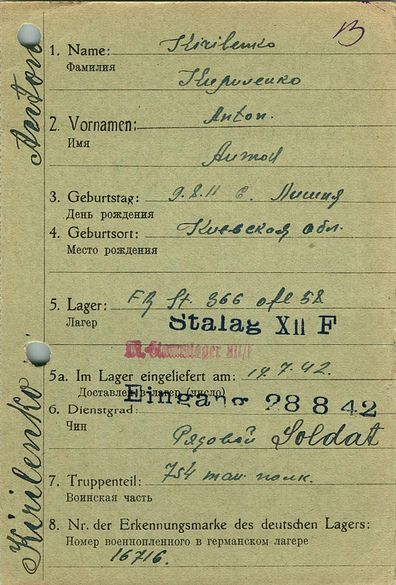 1. Name: Kirilenko
Фамилия
Кириленко
2. Vornamen: Anton.
Имя
Антон
3. Geburtstag: 9.8.11 с.
День рождения
4. Geburtsort: Киевская обл.
Место рождения
5. Lager: St. 366
Лагер
Stalag XII F
5a. Im Lager eingeliefert am: 19.7.42.
Доставлен в лагер (число)
Eingang 28 8 42
6. Dienstgrad:
Чин
Рядовой Soldat
7. Truppenteil: 754 полк.
Воинская часть
8. Nr. der Erkennungsmarke des deutschen Lagers:
Номер военнопленного в германском лагере
16716.
Kirilenko Anton